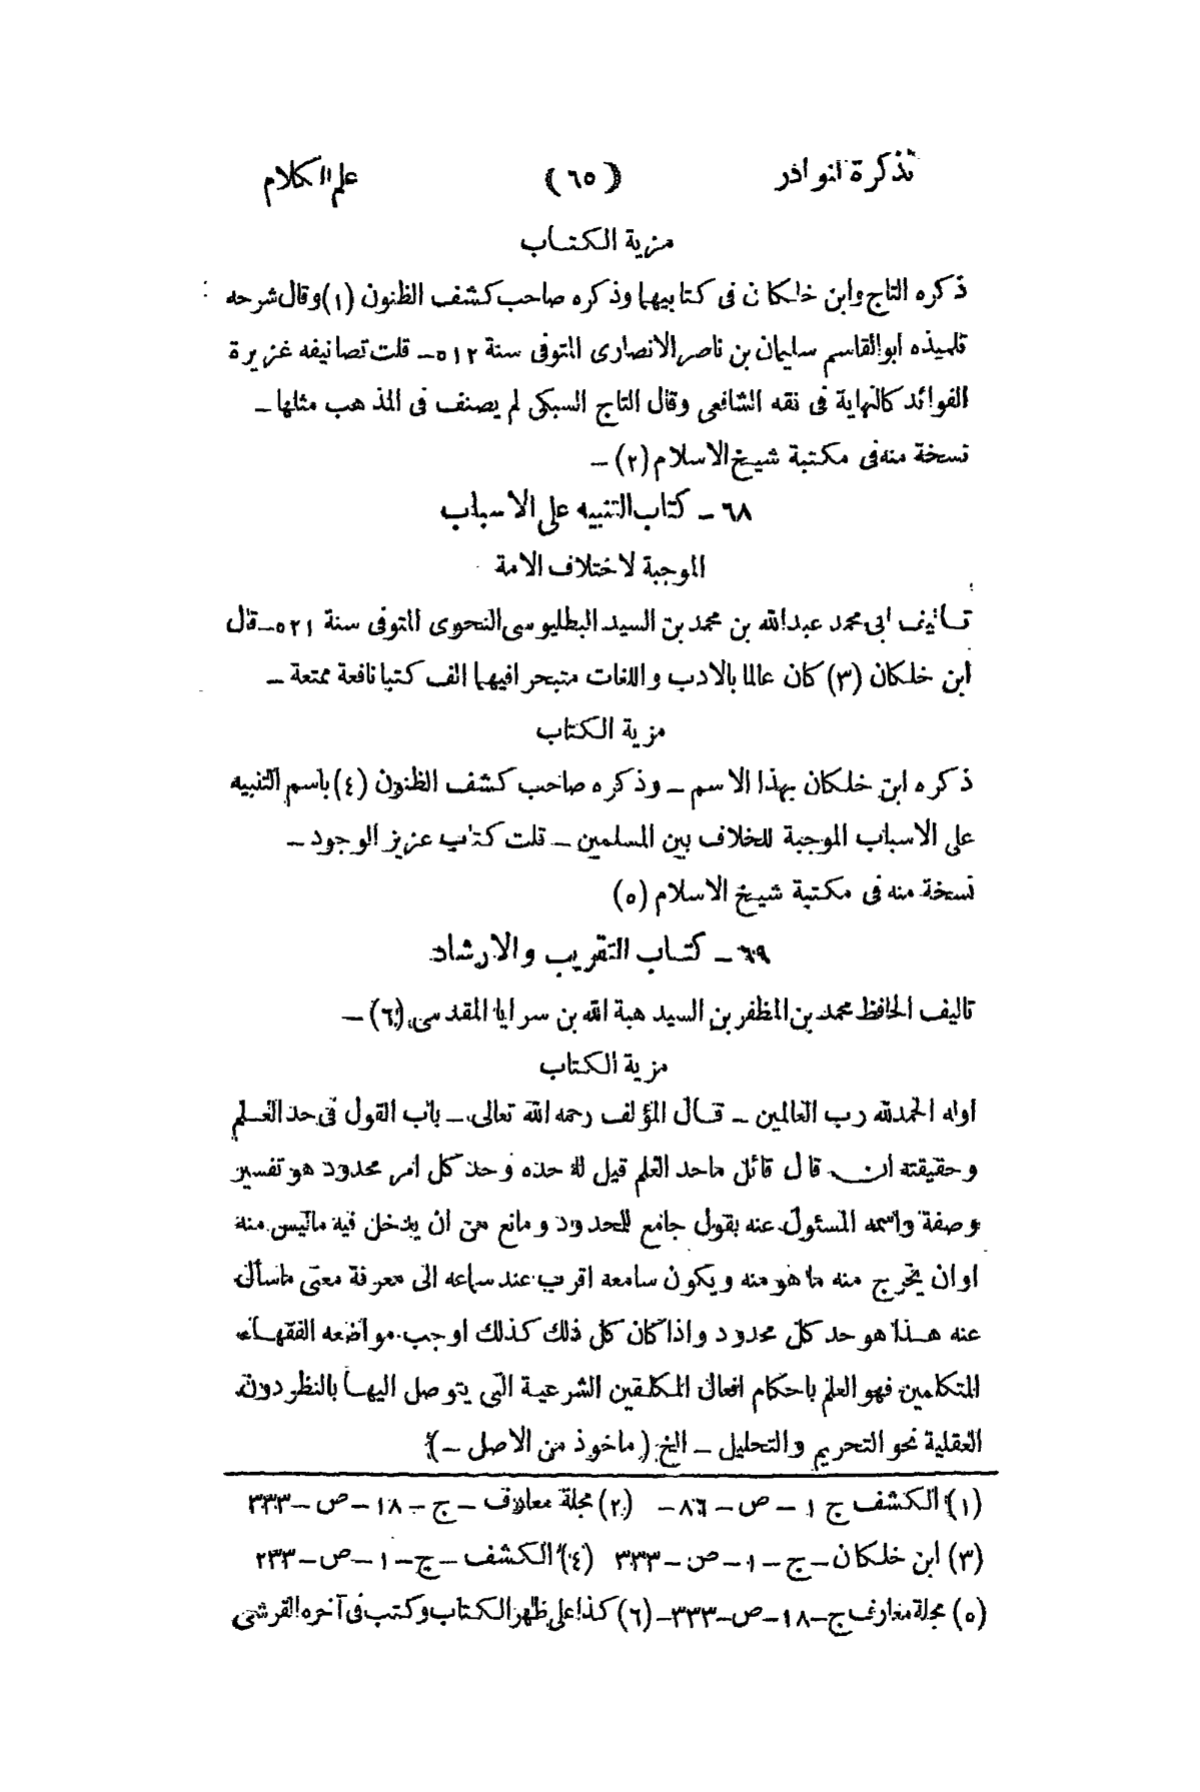 تذكرة النوادر (٦٥) علم الكلام
مزية الكتاب
ذكره التاج وابن خلكان فى كتابيهما وذكره صاحب كشف الظنون (١) وقال شرحه
تلميذه ابوالقاسم سليمان بن ناصر الانصارى المتوفى سنة ٥١٢ــ قلت تصانيفه غزيرة
الفوائد كالنهاية فى نقه الشافعى وقال التاج السبكى لم يصنف فى المذهب مثلها ــ
نسخة منه فى مكتبة شيخ الاسلام (٢) ــ
٦٨ ــ كتاب التنبيه على الاسباب
الموجبة لاختلاف الامة
تاليف ابى محمد عبدالله بن محمد بن السيد البطليوسى النحوى المتوفى سنة ٥٢١ــ قال
ابن خلكان (٣) كان عالما بالادب واللغات متبحرا فيهما الف كتبا نافعة ممتعة ــ
مزية الكتاب
ذكره ابن خلكان بهذا الاسم ــ وذكره صاحب كشف الظنون (٤) باسم التنبيه
على الاسباب الموجبة للخلاف بين المسلمين ــ قلت كتاب عزيز الوجود ــ
نسخة منه فى مكتبة شيخ الاسلام (٥)
٦٩ ــ كتاب التقريب والارشاد
تاليف الحافظ محمد بن المظفر بن السيد هبة الله بن سرايا المقدسى (٦) ــ
مزية الكتاب
اوله الحمدلله رب العالمين ــ قال المؤلف رحمه الله تعالى ــ باب القول فى حد العلم
وحقيقته ان قال قائل ماحد العلم قيل له حده وحد كل امر محدود هو تفسير
وصفة واسمه المسئول عنه بقول جامع للحدود ومانع من ان يدخل فيه ماليس منه
او ان يخرج منه ما هو منه ويكون سامعه اقرب عند سماعه الى معرفة معنى ماسأل
عنه هذا هو حد كل محدود واذا كان كل ذلك كذلك اوجب مواضعه الفقهاء
المتكلمين فهو العلم باحكام افعال المكلفين الشرعية التى يتوصل اليها بالنظر دون
العقلية نحو التحريم والتحليل ــ الخ (ماخوذ من الاصل ــ)
(١) الكشف ج ١ ــ ص ــ ٨٦ ــ (٢) مجلة معارف ــ ج ــ ١٨ ــ ص ــ ٣٣٣
(٣) ابن خلكان ــ ج ــ ١ ــ ص ــ ٣٣٣ (٤) الكشف ــ ج ــ ١ ــ ص ــ ٢٣٣
(٥) مجلة معارف ج ــ ١٨ ــ ص ــ ٣٣٣ ــ (٦) كذا على ظهر الكتاب وكتب فى آخره القرشى